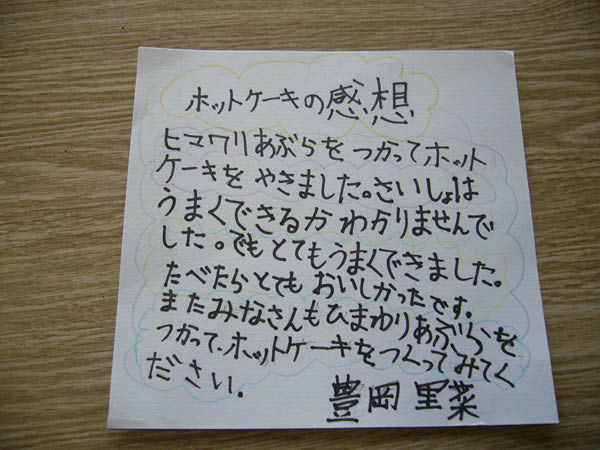 ホットケーキの感想
ヒマワリあぶらをつかってホット
ケーキをやきました。さいしょは
うまくできるかわかりませんで
した。でもとてもうまくできました。
たべたらとてもおいしかったです。
またみなさんもひまわりあぶらを
つかって、ホットケーキをつくってみてく
ださい.
豊岡里菜